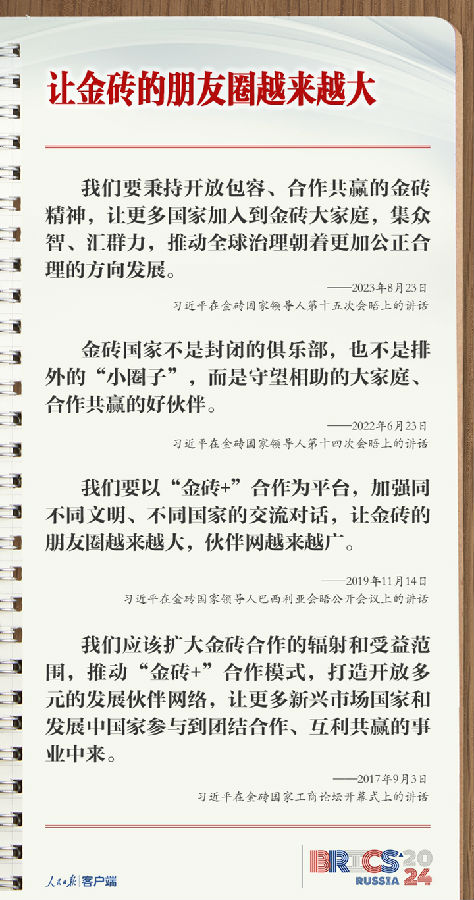 让金砖的朋友圈越来越大
我们要秉持开放包容、合作共赢的金砖
精神，让更多国家加入到金砖大家庭，集众
智、汇群力，推动全球治理朝着更加公正合
理的方向发展。
——2023年8月23日
习近平在金砖国家领导人第十五次会晤上的讲话
金砖国家不是封闭的俱乐部，也不是排
外的“小圈子”，而是守望相助的大家庭、
合作共赢的好伙伴。
——2022年6月23日
习近平在金砖国家领导人第十四次会晤上的讲话
我们要以“金砖+”合作为平台，加强同
不同文明、不同国家的交流对话，让金砖的
朋友圈越来越大，伙伴网越来越广。
——2019年11月14日
习近平在金砖国家领导人巴西利亚会晤公开会议上的讲话
我们应该扩大金砖合作的辐射和受益范
围，推动“金砖+”合作模式，打造开放多
元的发展伙伴网络，让更多新兴市场国家和
发展中国家参与到团结合作、互利共赢的事
业中来。
——2017年9月3日
习近平在金砖国家工商论坛开幕式上的讲话
人民日报 客户端
BRICS 20
RUSSIA 24